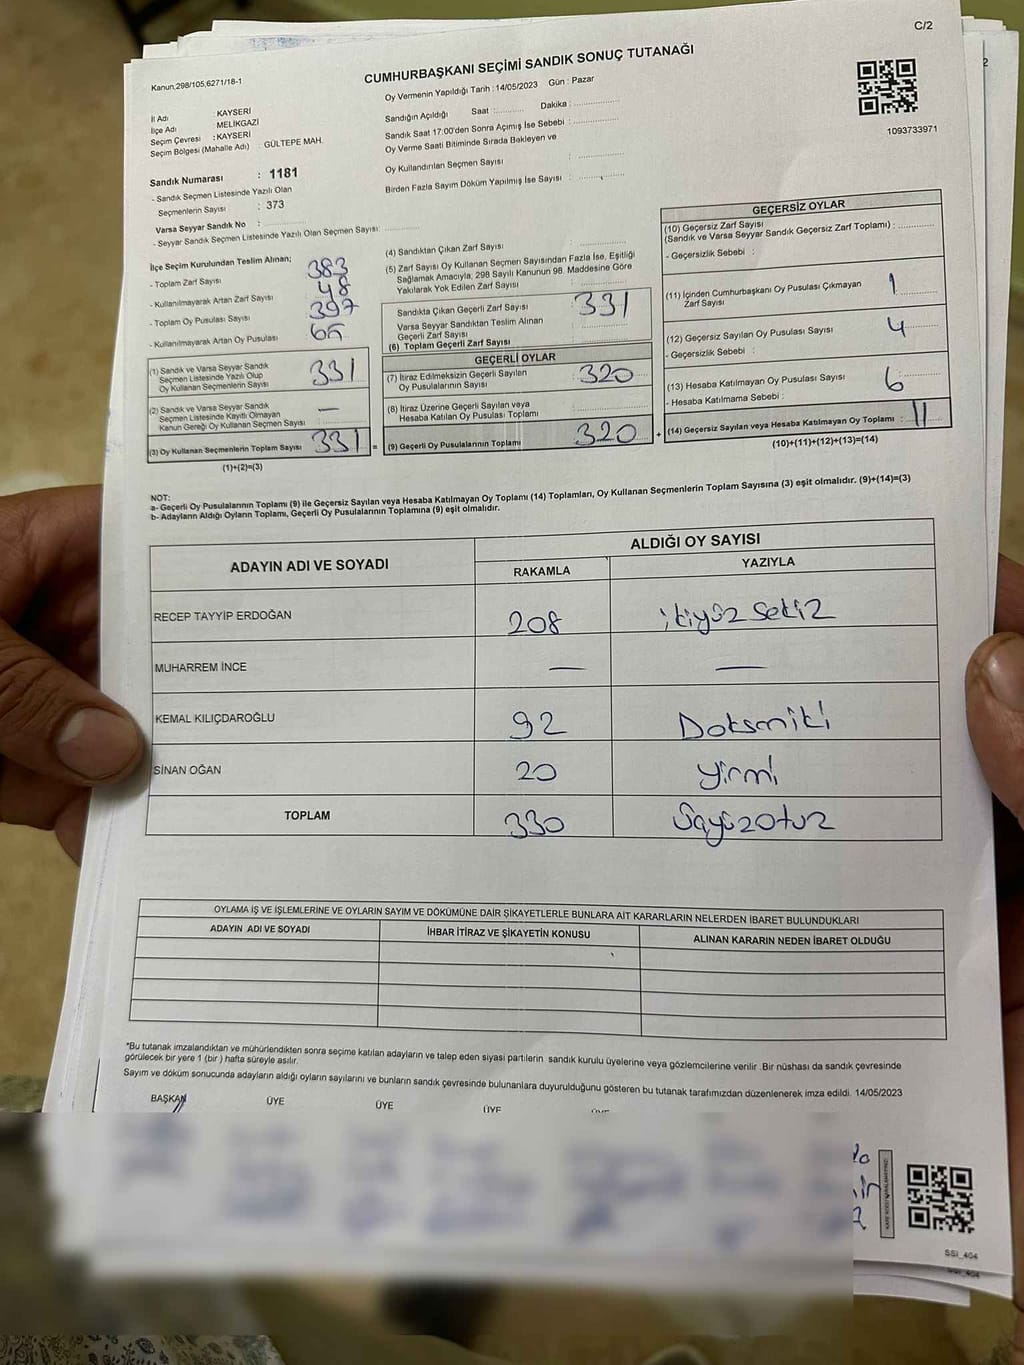 C/2
Kanun,298/105,6271/18-1
CUMHURBAŞKANI SEÇİMİ SANDIK SONUÇ TUTANAĞI
1093733971
İl Adı : KAYSERİ
İlçe Adı : MELİKGAZİ
Seçim Çevresi : KAYSERİ
Seçim Bölgesi (Mahalle Adı) : GÜLTEPE MAH.
Sandık Numarası : 1181
- Sandık Seçmen Listesinde Yazılı Olan
Seçmenlerin Sayısı : 373
Varsa Seyyar Sandık No :
- Seyyar Sandık Seçmen Listesinde Yazılı Olan Seçmen Sayısı:
Oy Vermenin Yapıldığı Tarih : 14/05/2023 Gün : Pazar
Sandığın Açıldığı Saat : Dakika :
Sandık Saat 17:00'den Sonra Açımış İse Sebebi :
Oy Verme Saati Bitiminde Sırada Bekleyen ve
Oy Kullandırılan Seçmen Sayısı :
Birden Fazla Sayım Döküm Yapılmış İse Sayısı :
İlçe Seçim Kurulundan Teslim Alınan;
- Toplam Zarf Sayısı : 383
- Kullanılmayarak Artan Zarf Sayısı : 48
- Toplam Oy Pusulası Sayısı : 397
- Kullanılmayarak Artan Oy Pusulası :
(1) Sandık ve Varsa Seyyar Sandık
Seçmen Listesinde Yazılı Olup
Oy Kullanan Seçmenlerin Sayısı : 331
(2) Sandık ve Varsa Seyyar Sandık
Seçmen Listesinde Kayıtlı Olmayan
Kanun Gereği Oy Kullanan Seçmen Sayısı : —
(3) Oy Kullanan Seçmenlerin Toplam Sayısı : 331 =
(1)+(2)=(3)
(4) Sandıktan Çıkan Zarf Sayısı :
(5) Zarf Sayısı Oy Kullanan Seçmen Sayısından Fazla İse, Eşitliği
Sağlamak Amacıyla; 298 Sayılı Kanunun 98. Maddesine Göre
Yakılarak Yok Edilen Zarf Sayısı :
Sandıkta Çıkan Geçerli Zarf Sayısı : 331
Varsa Seyyar Sandıktan Teslim Alınan
Geçerli Zarf Sayısı :
(6) Toplam Geçerli Zarf Sayısı :
GEÇERLİ OYLAR
(7) İtiraz Edilmeksizin Geçerli Sayılan
Oy Pusulalarının Sayısı : 320
(8) İtiraz Üzerine Geçerli Sayılan veya
Hesaba Katılan Oy Pusulası Toplamı :
(9) Geçerli Oy Pusulalarının Toplamı : 320 +
GEÇERSİZ OYLAR
(10) Geçersiz Zarf Sayısı
(Sandık ve Varsa Seyyar Sandık Geçersiz Zarf Toplamı) :
- Geçersizlik Sebebi :
(11) İçinden Cumhurbaşkanı Oy Pusulası Çıkmayan
Zarf Sayısı : 1
(12) Geçersiz Sayılan Oy Pusulası Sayısı : 4
- Geçersizlik Sebebi :
(13) Hesaba Katılmayan Oy Pusulası Sayısı : 6
- Hesaba Katılmama Sebebi :
(14) Geçersiz Sayılan veya Hesaba Katılmayan Oy Toplamı : 11
(10)+(11)+(12)+(13)=(14)
NOT:
a- Geçerli Oy Pusulalarının Toplamı (9) ile Geçersiz Sayılan veya Hesaba Katılmayan Oy Toplamı (14) Toplamları, Oy Kullanan Seçmenlerin Toplam Sayısına (3) eşit olmalıdır. (9)+(14)=(3)
b- Adayların Aldığı Oyların Toplamı, Geçerli Oy Pusulalarının Toplamına (9) eşit olmalıdır.
ADAYIN ADI VE SOYADI ALDIĞI OY SAYISI
RAKAMLA YAZIYLA
RECEP TAYYİP ERDOĞAN 208 ikiyüz sekiz
MUHARREM İNCE — —
KEMAL KILIÇDAROĞLU 92 Doksaniki
SİNAN OĞAN 20 yirmi
TOPLAM 330 Üçyüzotuz
OYLAMA İŞ VE İŞLEMLERİNE VE OYLARIN SAYIM VE DÖKÜMÜNE DAİR ŞİKAYETLERLE BUNLARA AİT KARARLARIN NELERDEN İBARET BULUNDUKLARI
ADAYIN ADI VE SOYADI İHBAR İTİRAZ VE ŞİKAYETİN KONUSU ALINAN KARARIN NEDEN İBARET OLDUĞU
*Bu tutanak imzalandıktan ve mühürlendikten sonra seçime katılan adayların ve talep eden siyasi partilerin sandık kurulu üyelerine veya gözlemcilerine verilir .Bir nüshası da sandık çevresinde
görülecek bir yere 1 (bir ) hafta süreyle asılır.
Sayım ve döküm sonucunda adayların aldığı oyların sayılarını ve bunların sandık çevresinde bulunanlara duyurulduğunu gösteren bu tutanak tarafımızdan düzenlenerek imza edildi. 14/05/2023
BAŞKAN ÜYE ÜYE ÜYE
SSI_404